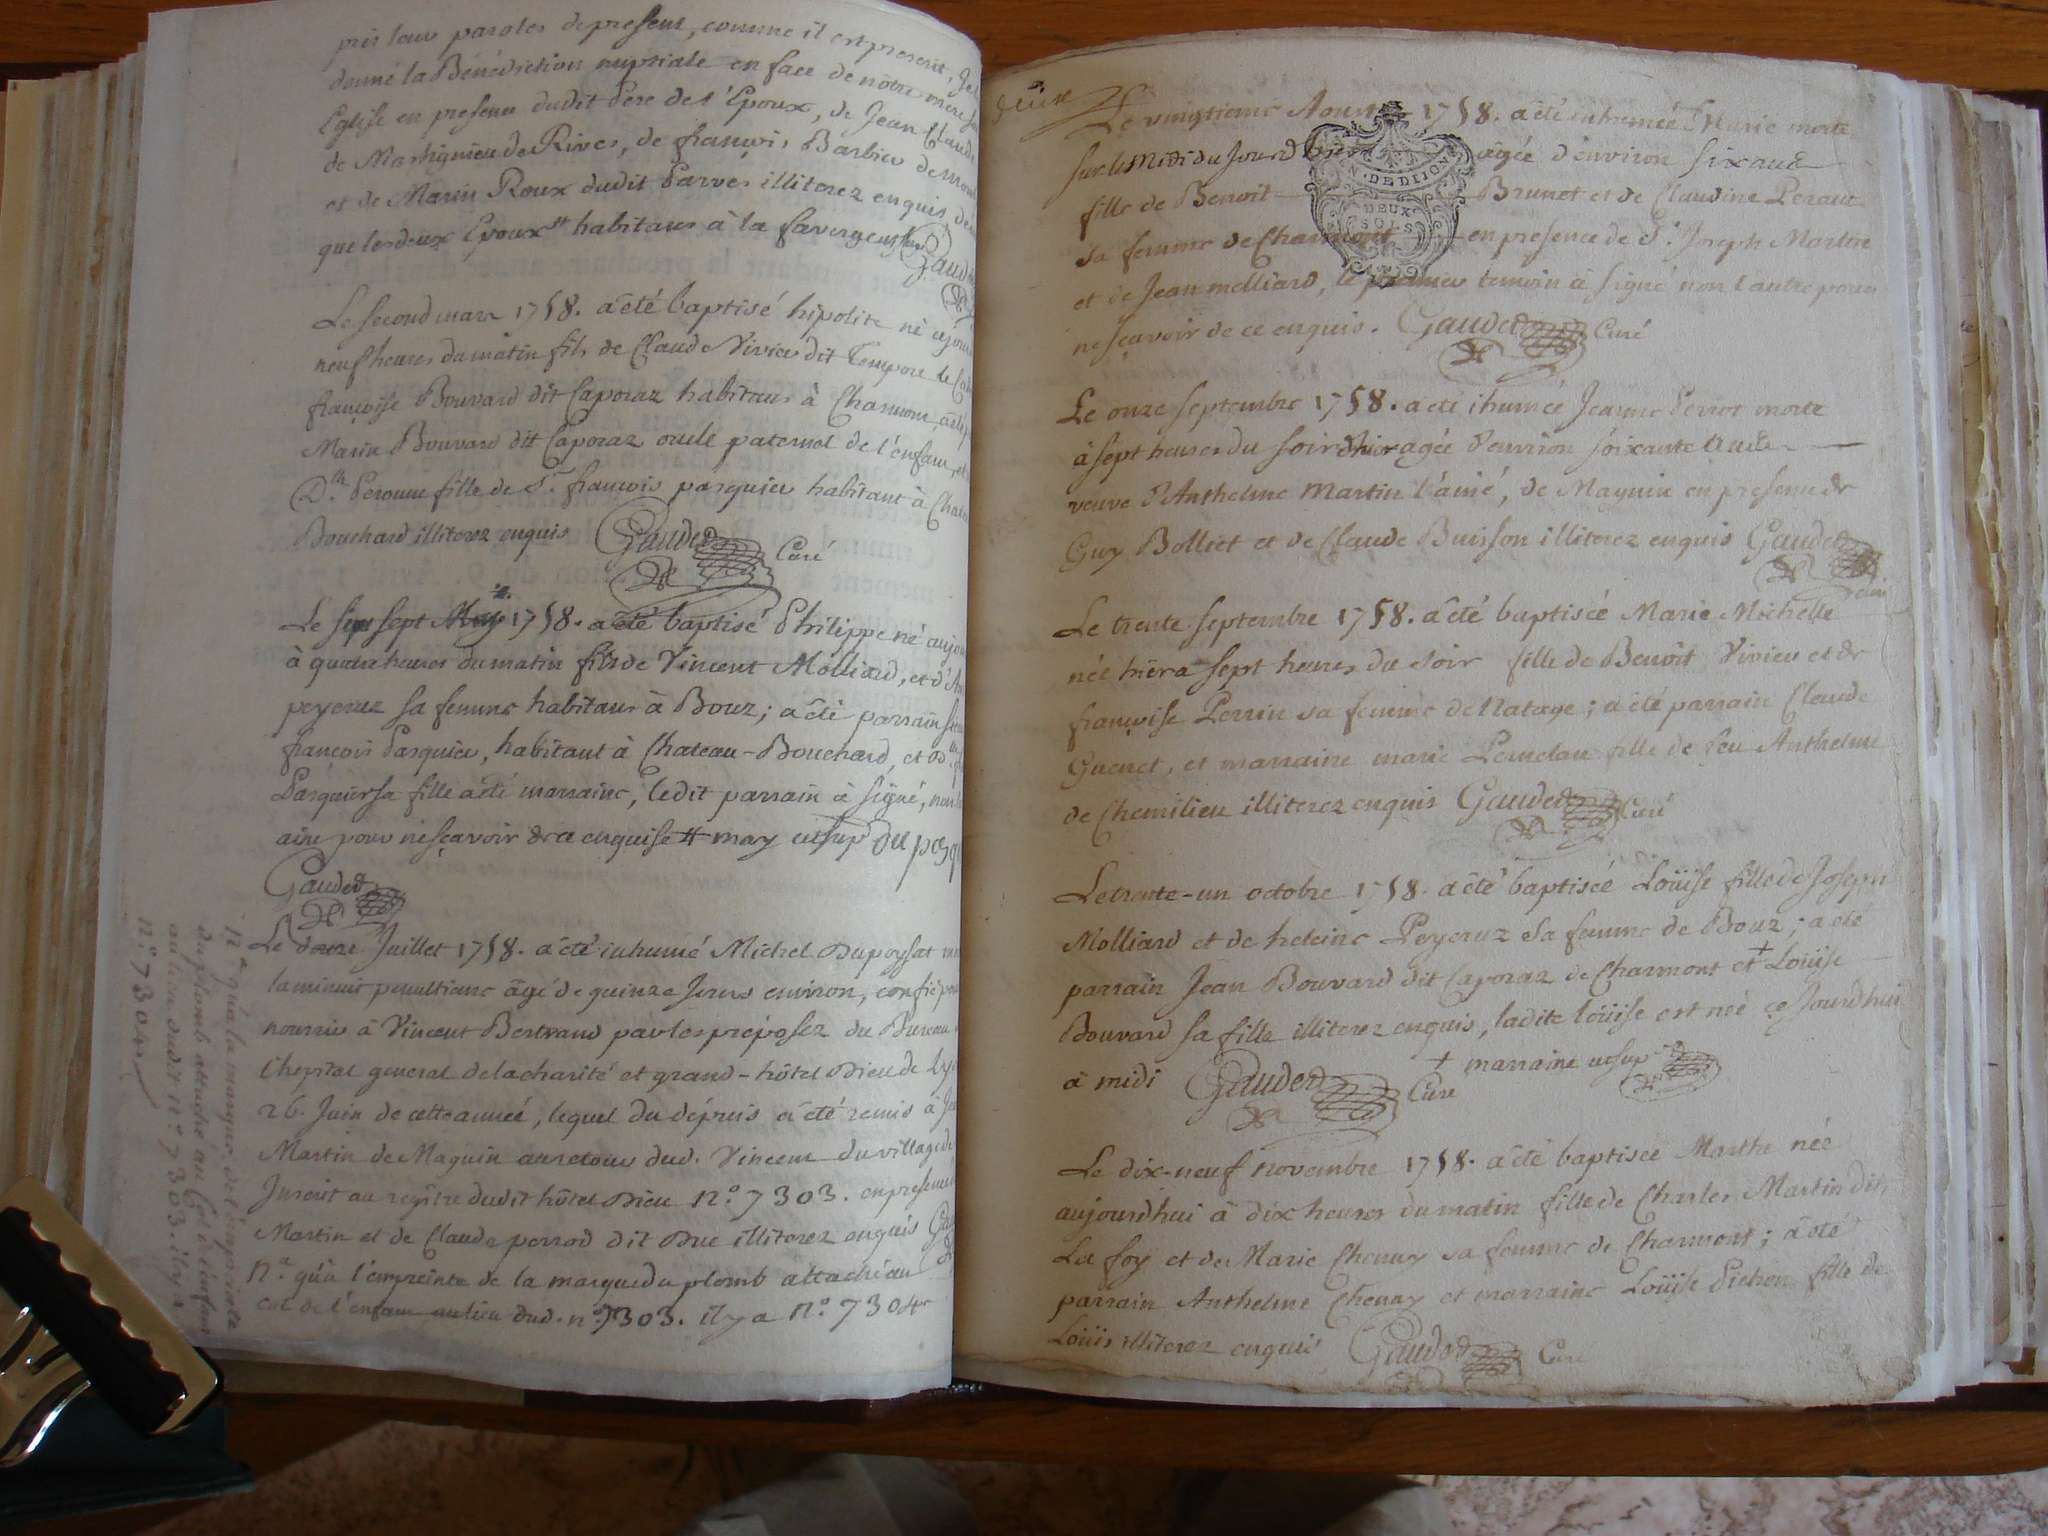 pris leur paroles de present, comme il est prescrit, Je
donné la Bénédiction nuptiale en face de nôtre mere
Eglise en presence dudit Pere de l'Epoux, de Jean Claude
de Martignieu de Rives, de françois Barbier de
et de Marin Roux dudit Parves illiterez enquis, de
que les deux Epoux habitans à la favergeusse
Gaudet
Le second mars 1758. a êté baptisé hipolite né
neuf heures du matin fils de Claude Vivier dit
françoise Bouvard dit Caporaz habitans à Charmont, a êté
Marin Bouvard dit Caporaz oncle paternel de l'enfant, et
Dlle. Peroune fille de Sr. françois pasquier habitant à
Bouchard illiterez enquis Gaudet Curé
Le sept 1758. a êté baptisé Philippe né
à quatre heures du matin fils de Vincent Molliard, et d'
peyeruz sa femme habitans à Bouz; a êté parrain
françois Pasquier, habitant à Chateau-Bouchard, et
Pasquier sa fille a êté marraine, ledit parrain à signé, non
aine pour ne sçavoir de ce enquise # may utsup du pasq
Gaudet
Le douze Juillet 1758. a êté inhumé Michel Dupoysat
la minuit penultiame âgé de quinze Jours environ, confié
nourrir à Vincent Bertrand par les préposez du Bureau
l'hopital general de la charité et grand-hôtel Dieu de
26. Juin de cette année, lequel du dépuis a êté remis à
Martin de Magnin au retour dud. Vincent du village de
Inscrit au regître dudit hôtel Dieu N.o 7303. en presence
Martin et de Claude perrod dit Duc illiterez enquis
Na. qu'à l'empreinte de la marque du plomb attaché au
col de l'enfant au lieu dud. n.o 7303. il y a N.o 7304
Na. qu'à la marque de l'empreinte
du plomb attaché au Col de l'enfant
au lieu dudit n.o 7303. il y a
n.o 7304
deux
Le vingtieme Aoust 1758. a êté inhumée Marie morte
sur le Midi du Jour d'hier âgée d'environ six ans
N. DE DIJON
DEUX
SOLS
fille de Benoit Brunet et de Claudine Peraut
sa femme de Charmont en presence de Sr. Joseph Martin
et de Jean molliard, le premier temoin à signé non l'autre pour
ne sçavoir de ce enquis. Gaudet Curé
Le onze septembre 1758. a eté ihumée Jeanne Perrot morte
à sept heures du soir d'hier agée d'environ soixante
veuve d'Anthelme Martin l'ainé, de Magnin en presence de
Guy Bolliet et de Claude Buisson illiterez enquis Gaudet
Curé
Le trente septembre 1758. a êté baptisée Marie Michelle
née hiér à sept heures du soir fille de Benoît Vivier et de
françoise Perrin sa femme de Natage; a êté parrain Claude
Guenet, et marraine marie fille de feu Anthelme
de Chemilieu illiterez enquis Gaudet Curé
Le trente-un octobre 1758. a êté baptisée Loüise fille de Joseph
Molliard et de heleine Peyeruz sa femme de Bouz; a êté
parrain Jean Bouvard dit Caporaz de Charmont et + Loüise
Bouvard sa fille illiterez enquis, ladite loüise est née ce Jourd'hui
à midi Gaudet Curé
+ marraine utsup
Le dix-neuf novembre 1758. a êté baptisée Marthe née
aujourd'hui à dix heures du matin fille de Charles Martin dit
La foy et de Marie Chenay sa femme de Charmont; a êté
parrain Anthelme Chenay et marraine Loüise Pichon fille de
Loüis illiterez enquis Gaudet Curé